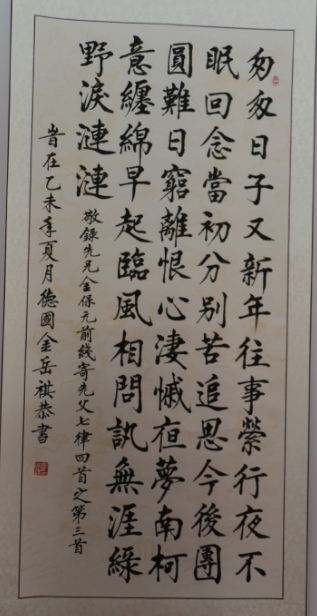 匆匆日子又新年往事縈行夜不
眠回念當初分別苦追思今後團
圓難日窮離恨心淒慽亱夢南柯
意纏綿早起臨風相問訊無涯綠
野淚漣漣
敬錄先兄金保元前綫寄先父七律四首之第三首
旹在乙未年夏月德國金岳祺恭書